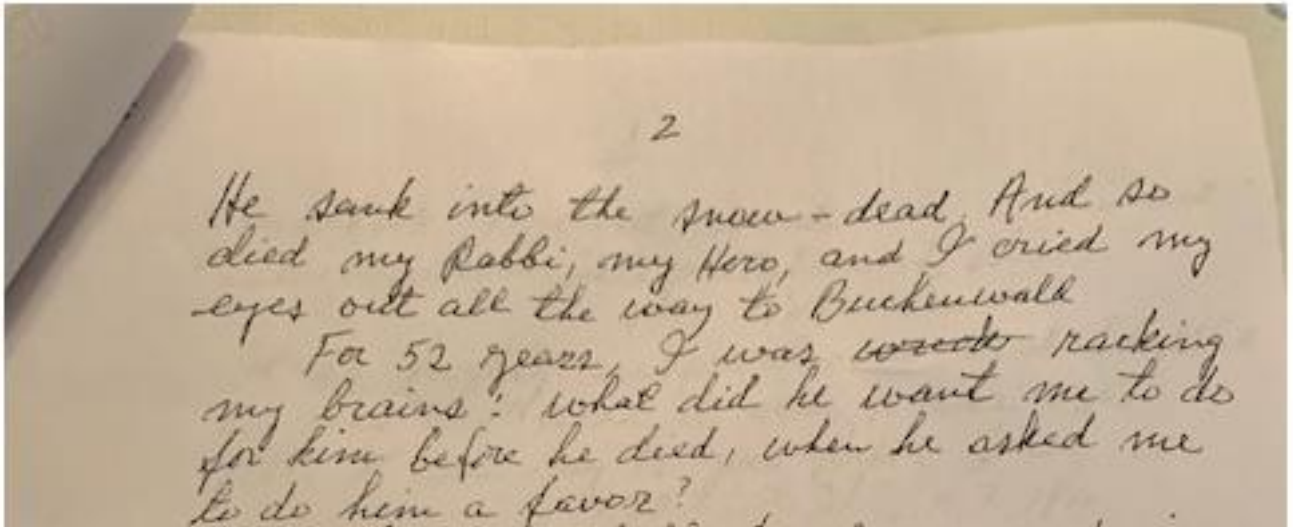 2
He sank into the snow - dead. And so
died my Rabbi, my Hero, and I cried my
eyes out all the way to Buchenwald
For 52 years, I was racking
my brains: what did he want me to do
for him before he died, when he asked me
to do him a favor?